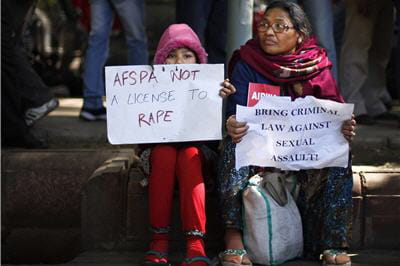 AFSPA NOT
A LICENSE TO
RAPE
BRING CRIMINAL
LAW AGAINST
SEXUAL
ASSAULT!